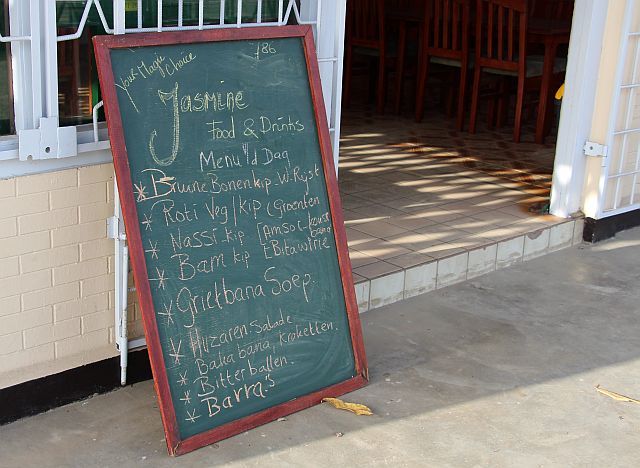 786
Your Magic Choice
Jasmine
Food & Drinks
Menu v/d Dag
* Bruine Bonen kip - W. Rijst
* Roti Veg / kip (Groenten
* Nassi kip [Amsoi - kousebana
* Bam kip [Bitawirie
* Grietbana Soep.
* Huzaren Salade
* Baka bana, kroketten.
* Bitterballen.
* Barra's